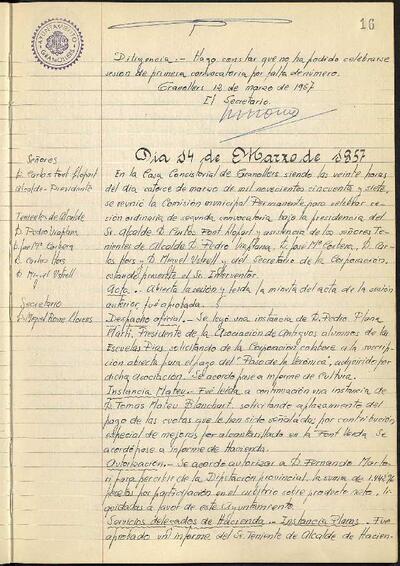 16
AYUNTAMIENTO
GRANOLLERS
Diligencia.- Hago constar que no ha podido celebrarse
sesion de primera convocatoria por falta de numero.
Granollers 12 de marzo de 1957
El Secretario.
Dia 14 de Marzo de 1957
Señores
D. Carlos Font Llopart
Alcalde-Presidente
Tenientes de Alcalde
D. Pedro Viaplana
D. José Mª Corbera
D. Carlos
D. Miguel
Secretario
En la Casa Consistorial de Granollers siendo las veinte horas
del dia catorce de marzo de mil novecientos cincuenta y siete,
se reunió la Comisión municipal Permanente para celebrar se-
sión ordinaria de segunda convocatoria bajo la presidencia del
Sr. Alcalde D. Carlos Font Llopart y asistencia de los señores Te-
nientes de Alcalde D. Pedro Viaplana, D. José Mª Corbera, D. Car-
los y D. Miguel y del Secretario de la Corporación,
estando presente el Sr. Interventor.
Acta.- Abierta la sesión y leida la minuta del acta de la sesión
anterior fue aprobada.
Despacho oficial.- Se leyó una instancia de D. Pedro Plana
Martí, Presidente de la Asociación de Antiguos alumnos de las
Escuelas Pias solicitando de la Corporación colabore a la suscrip-
ción abierta para el pago del "Paso de la Verónica", adquirido por
dicha Asociación. Se acordo pase a informe de Cultura.
Instancia Mateu.- Fué leida a continuación una instancia de
D. Tomas Mateu Blancburt, solicitando aplazamiento del
pago de las cuotas que le han sido señaladas por contribución
especial de mejoras por alcantarillado en la Font Verda. Se
acordó pase a informe de Hacienda.
Autorización.- Se acordo autorizar a D. Fernando
para percibir de la Diputación provincial, la suma de
pesetas por participación en el arbitrio sobre producto neto, li-
quidadas a favor de este Ayuntamiento.
Servicios delegados de Hacienda.- Instancia Plans.- Fue
aprobado un informe del Sr. Teniente de Alcalde de Hacien-